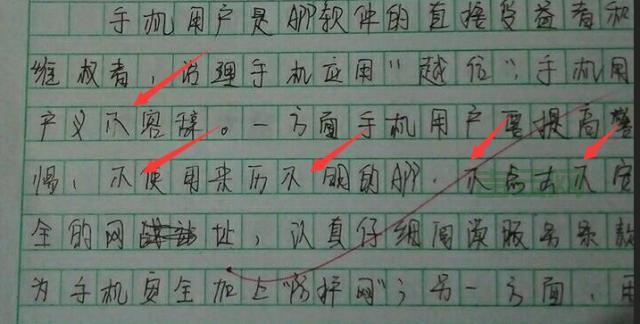 手机用户是APP软件的直接受益者和
维权者，治理手机应用“越位”，手机用
户义不容辞。一方面手机用户要提高警
惕，不使用来历不明的APP，不点击不安
全的网址，认真仔细阅读服务条款
为手机安全加上“防护网”；另一方面，用